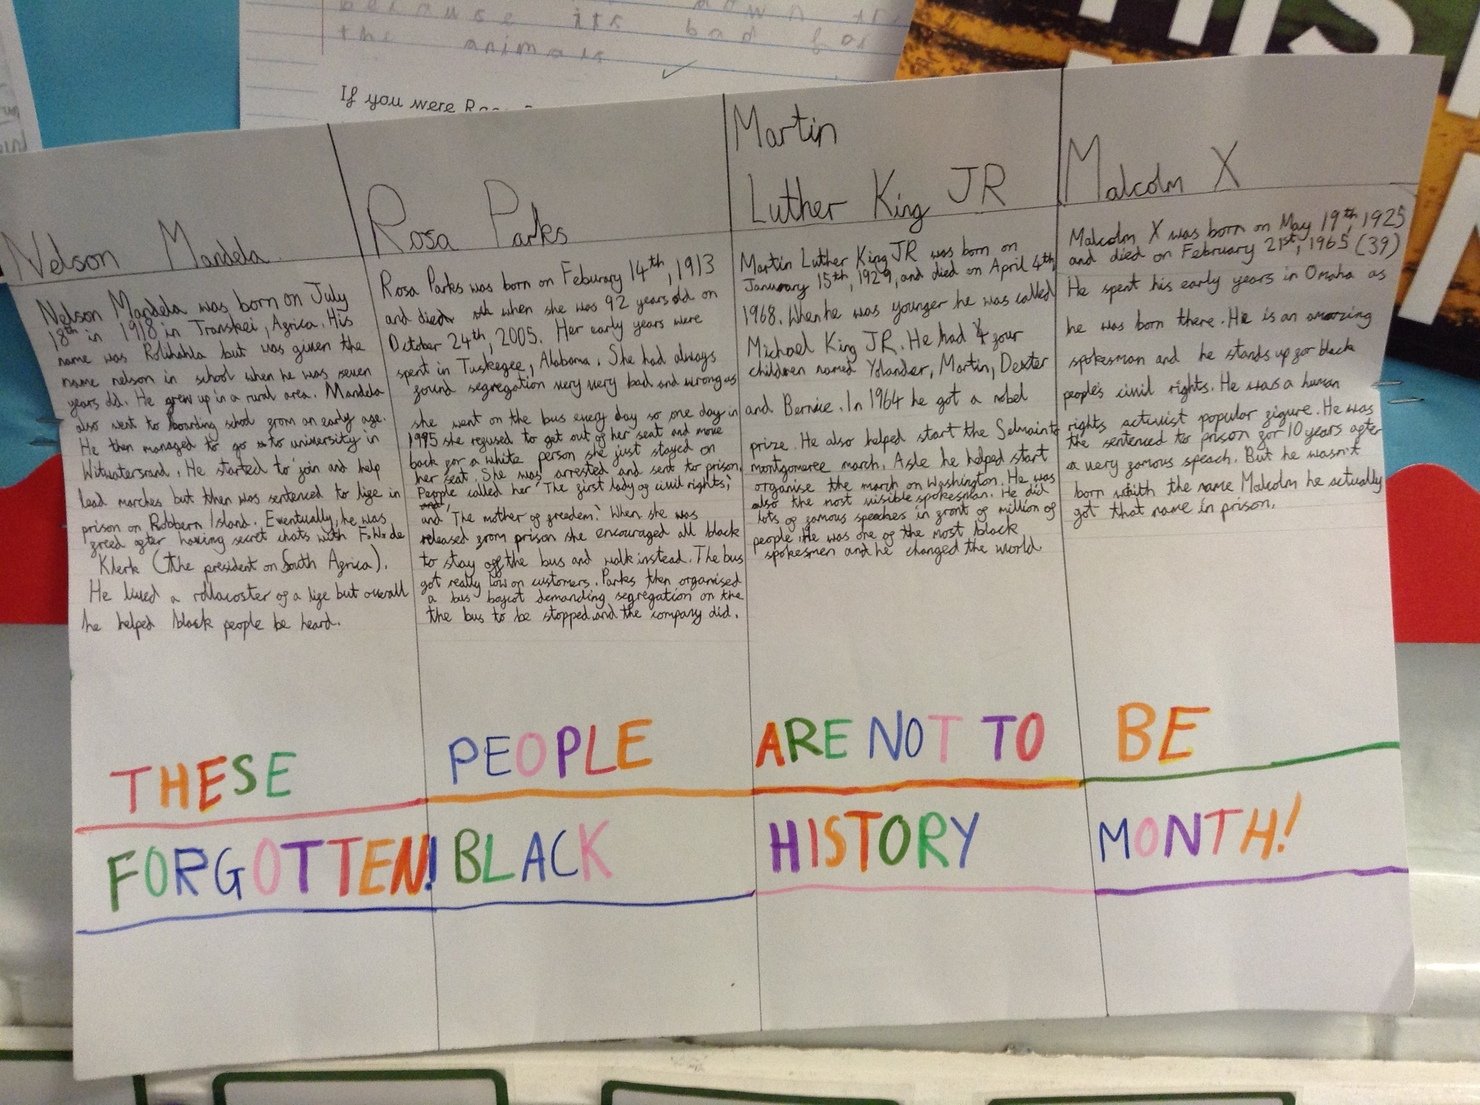 because its down
the animals bad for
If you were
HIS
Nelson Mandela
Nelson Mandela was born on July
18th in 1918 in Transkei, Africa. His
name was Rolihahla but was given the
name nelson in school when he was seven
years old. He grew up in a rural area. Mandela
also went to boarding school from an early age.
He then managed to go to university in
Witwatersrand. He started to join and help
lead marches but then was sentenced to life in
prison on Robbern Island. Eventually, he was
freed after having secret chats with F.W.de
Klerk (the president on South Africa).
He lived a rollacoster of a life but overall
he helped black people be heard.
Rosa Parks
Rosa Parks was born on Feburary 14th, 1913
and died when she was 92 years old on
October 24th, 2005. Her early years were
spent in Tuskegee, Alabama. She had always
found segregation very very bad and wrong as
she went on the bus every day so one day in
1995 she refused to get out of her seat and move
back for a white person she just stayed on
her seat. She was arrested and sent to prison.
People called her 'The first lady of civil rights',
and 'The mother of freedem'. When she was
released from prison she encouraged all black
to stay off the bus and walk instead. The bus
got really low on customers. Parks then organised
a bus boycot demanding segregation on the
the bus to be stopped and the company did.
Martin
Luther King JR
Martin Luther King JR was born on
January 15th, 1929, and died on April 4th,
1968. When he was younger he was called
Michael King JR. He had 4 four
children named Yolander, Martin, Dexter
and Bernice. In 1964 he got a nobel
prize. He also helped start the Selmainto
montgomeree march. Aslo he helped start
organise the march on Washington. He was
also the most visible spokesman. He did
lots of famous speeches in front of million of
people. He was one of the most black
spokesmen and he changed the world
Malcolm X
Malcolm X was born on May 19th, 1925
and died on February 21st, 1965 (39)
He spent his early years in Omaha as
he was born there. He is an amazing
spokesman and he stands up for black
people's civil rights. He was a human
rights activist popular figure. He was
the sentenced to prison for 10 years after
a very famous speach. But he wasn't
born with the name Malcolm he actually
got that name in prison.
THESE PEOPLE ARE NOT TO BE
FORGOTTEN! BLACK HISTORY MONTH!